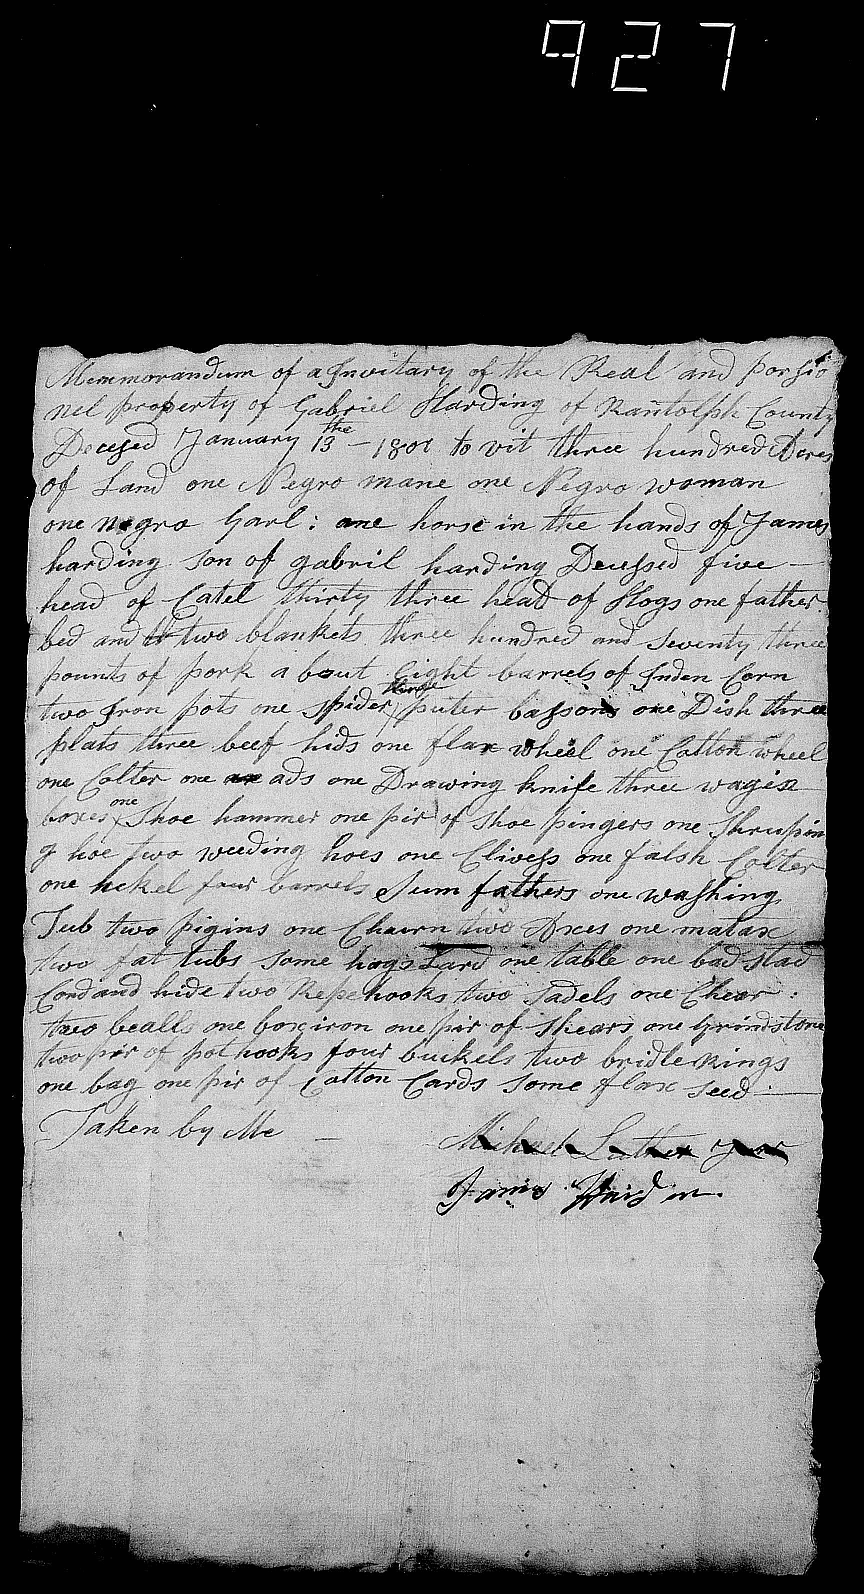 927
Memmorandum of a Invitary of the Real and porsio
nel property of Gabriel Harding of Rantolph County
Decesed January 13the - 1801 to vit three hundred Acres
of Land one Negro mane one Negro woman
one negro Garl: one horse in the hands of James
harding son of gabril harding Decessed five
head of Catel thirty three head of Hogs one father
bed and two blankets three hundred and seventy three
pounts of pork a bout Eight barrels of Inden Corn
two Iron pots one spider three puter bassons one Dish three
plats three beef hids one flax wheel one Cotton wheel
one Colter one ads one Drawing knife three wagin
boxes one Shoe hammer one pir of shoe pingers one
g hoe two weeding hoes one Clivess one falsh Colter
one hckel four barrels Sum fathers one washing
Tub two pigins one Chaurn two Axes one matax
two fat tubs some hogs Lard one table one bad stad
Cord and hide two Repe hooks two Sadels one Chear:
two bealls one box iron one pir of shears one Grindstone
two pir of pot hooks four buckels two bridle Rings
one bag one pir of Cotton Cards some flax seed
Taken by Me
Michael Luther